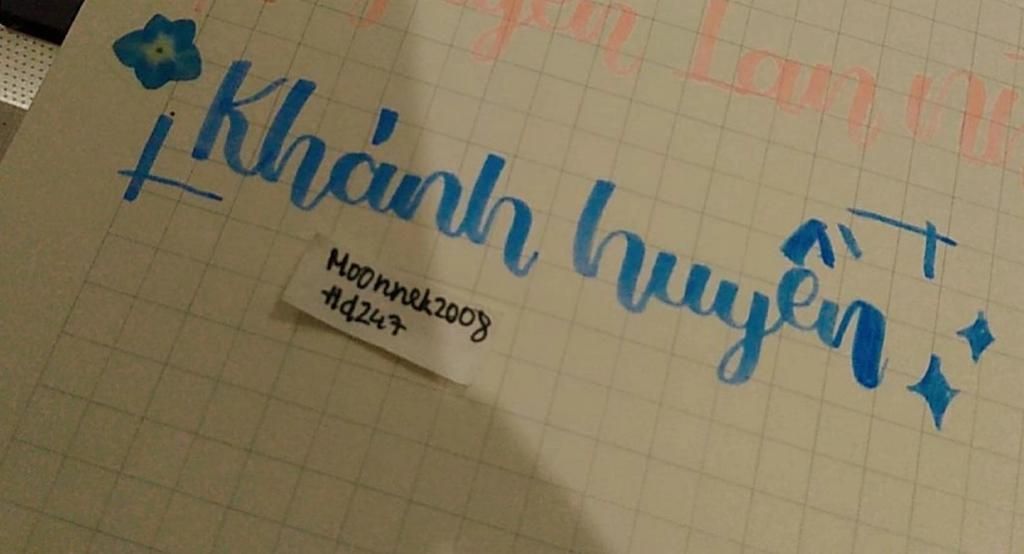 Lan
Khánh huyền
Moonnek2008
#d247